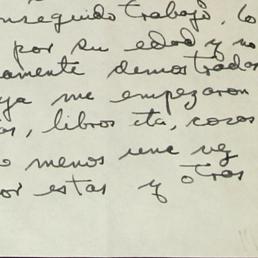 nseguido trabajo, lo
por su edad y no
amente demostradas
ya me empezaron
os, libros etc, cosas
o menos una vez
or estas y otras